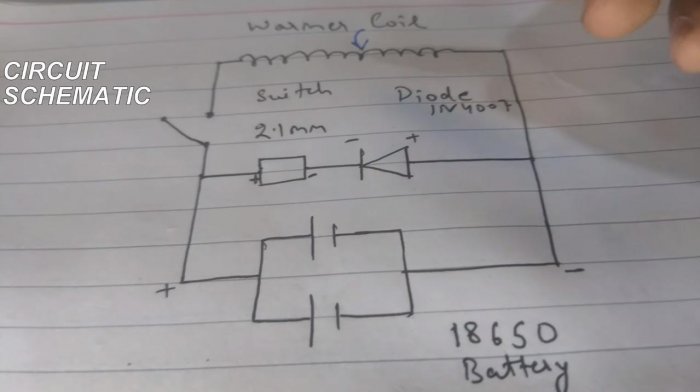 Warmer Coil
CIRCUIT
SCHEMATIC
Switch
Diode
1N4007
2.1mm
- +
+ -
+ -
18650
Battery